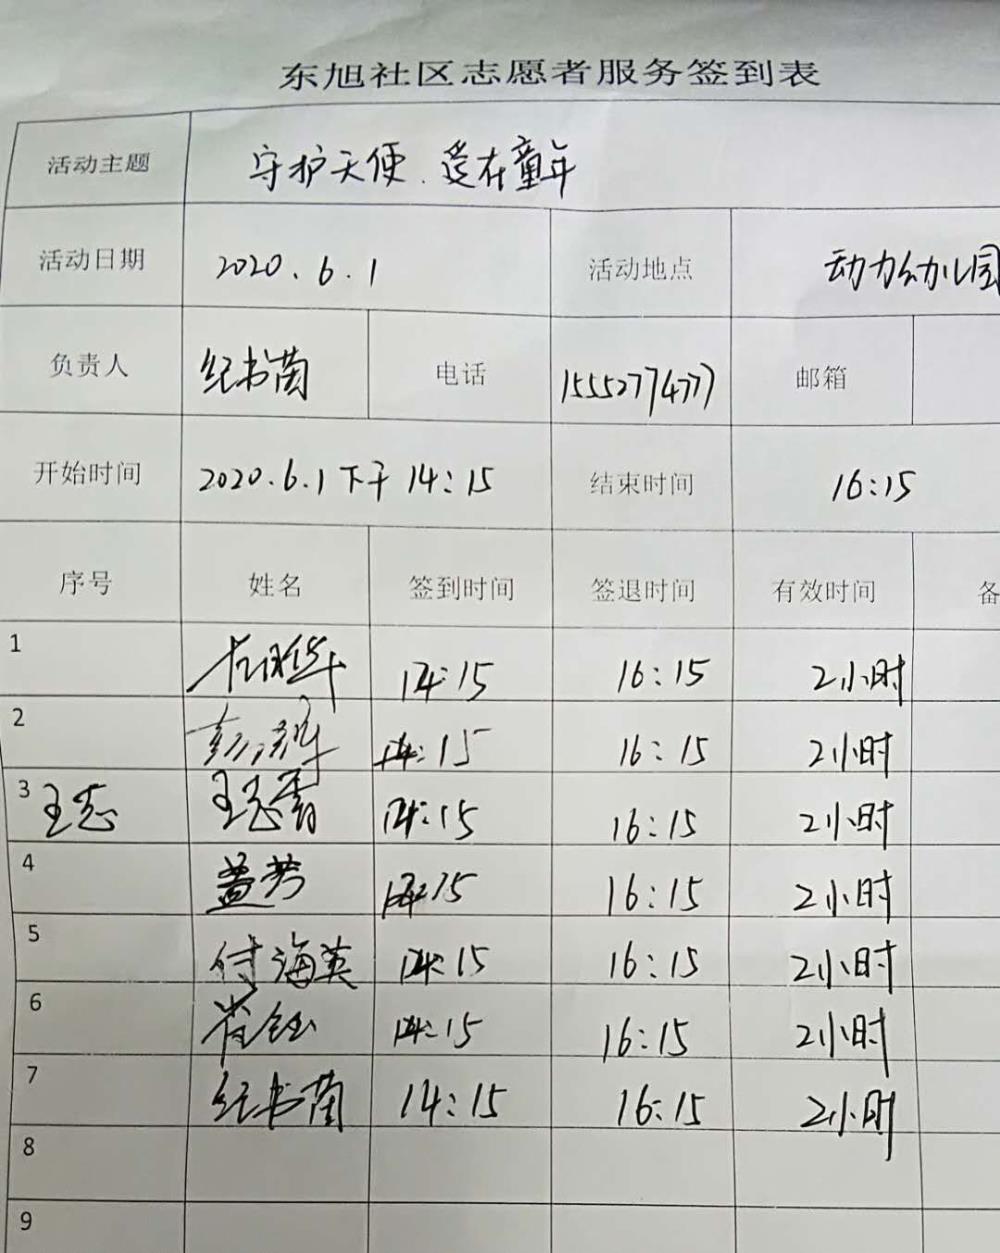 东旭社区志愿者服务签到表
活动主题 守护天使.爱在童年
活动日期 2020.6.1 活动地点 动力幼儿园
负责人 纪书茵 电话 15552774777 邮箱
开始时间 2020.6.1 下午 14:15 结束时间 16:15
序号 姓名 签到时间 签退时间 有效时间 备
1 14:15 16:15 2小时
2 14:15 16:15 2小时
3 王志 王志香 14:15 16:15 2小时
4 盖芳 14:15 16:15 2小时
5 付海英 14:15 16:15 2小时
6 肖钰 14:15 16:15 2小时
7 纪书茵 14:15 16:15 2小时
8
9